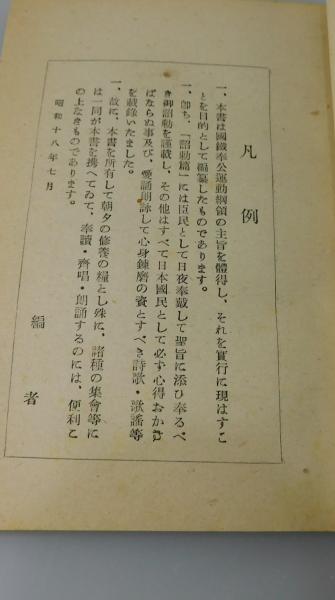 凡例
一、本書は國鐵奉公運動綱領の主旨を體得し、それを實行に現はすこ
とを目的として編纂したものであります。
一、卽ち、「詔勅篇」には臣民として日夜奉戴して聖旨に添ひ奉るべ
き御詔勅を謹載し、その他はすべて日本國民として必ず心得おかね
ばならぬ事及び、愛誦朗詠して心身鍊磨の資とすべき詩歌・歌謠等
を載錄いたました。
一、故に、本書を所有して朝夕の修養の糧とし殊に、諸種の集會等に
は一同が本書を携へてゐて、奉讀・齊唱・朗誦するのには、便利こ
の上なきものであります。
昭和十八年七月
編者